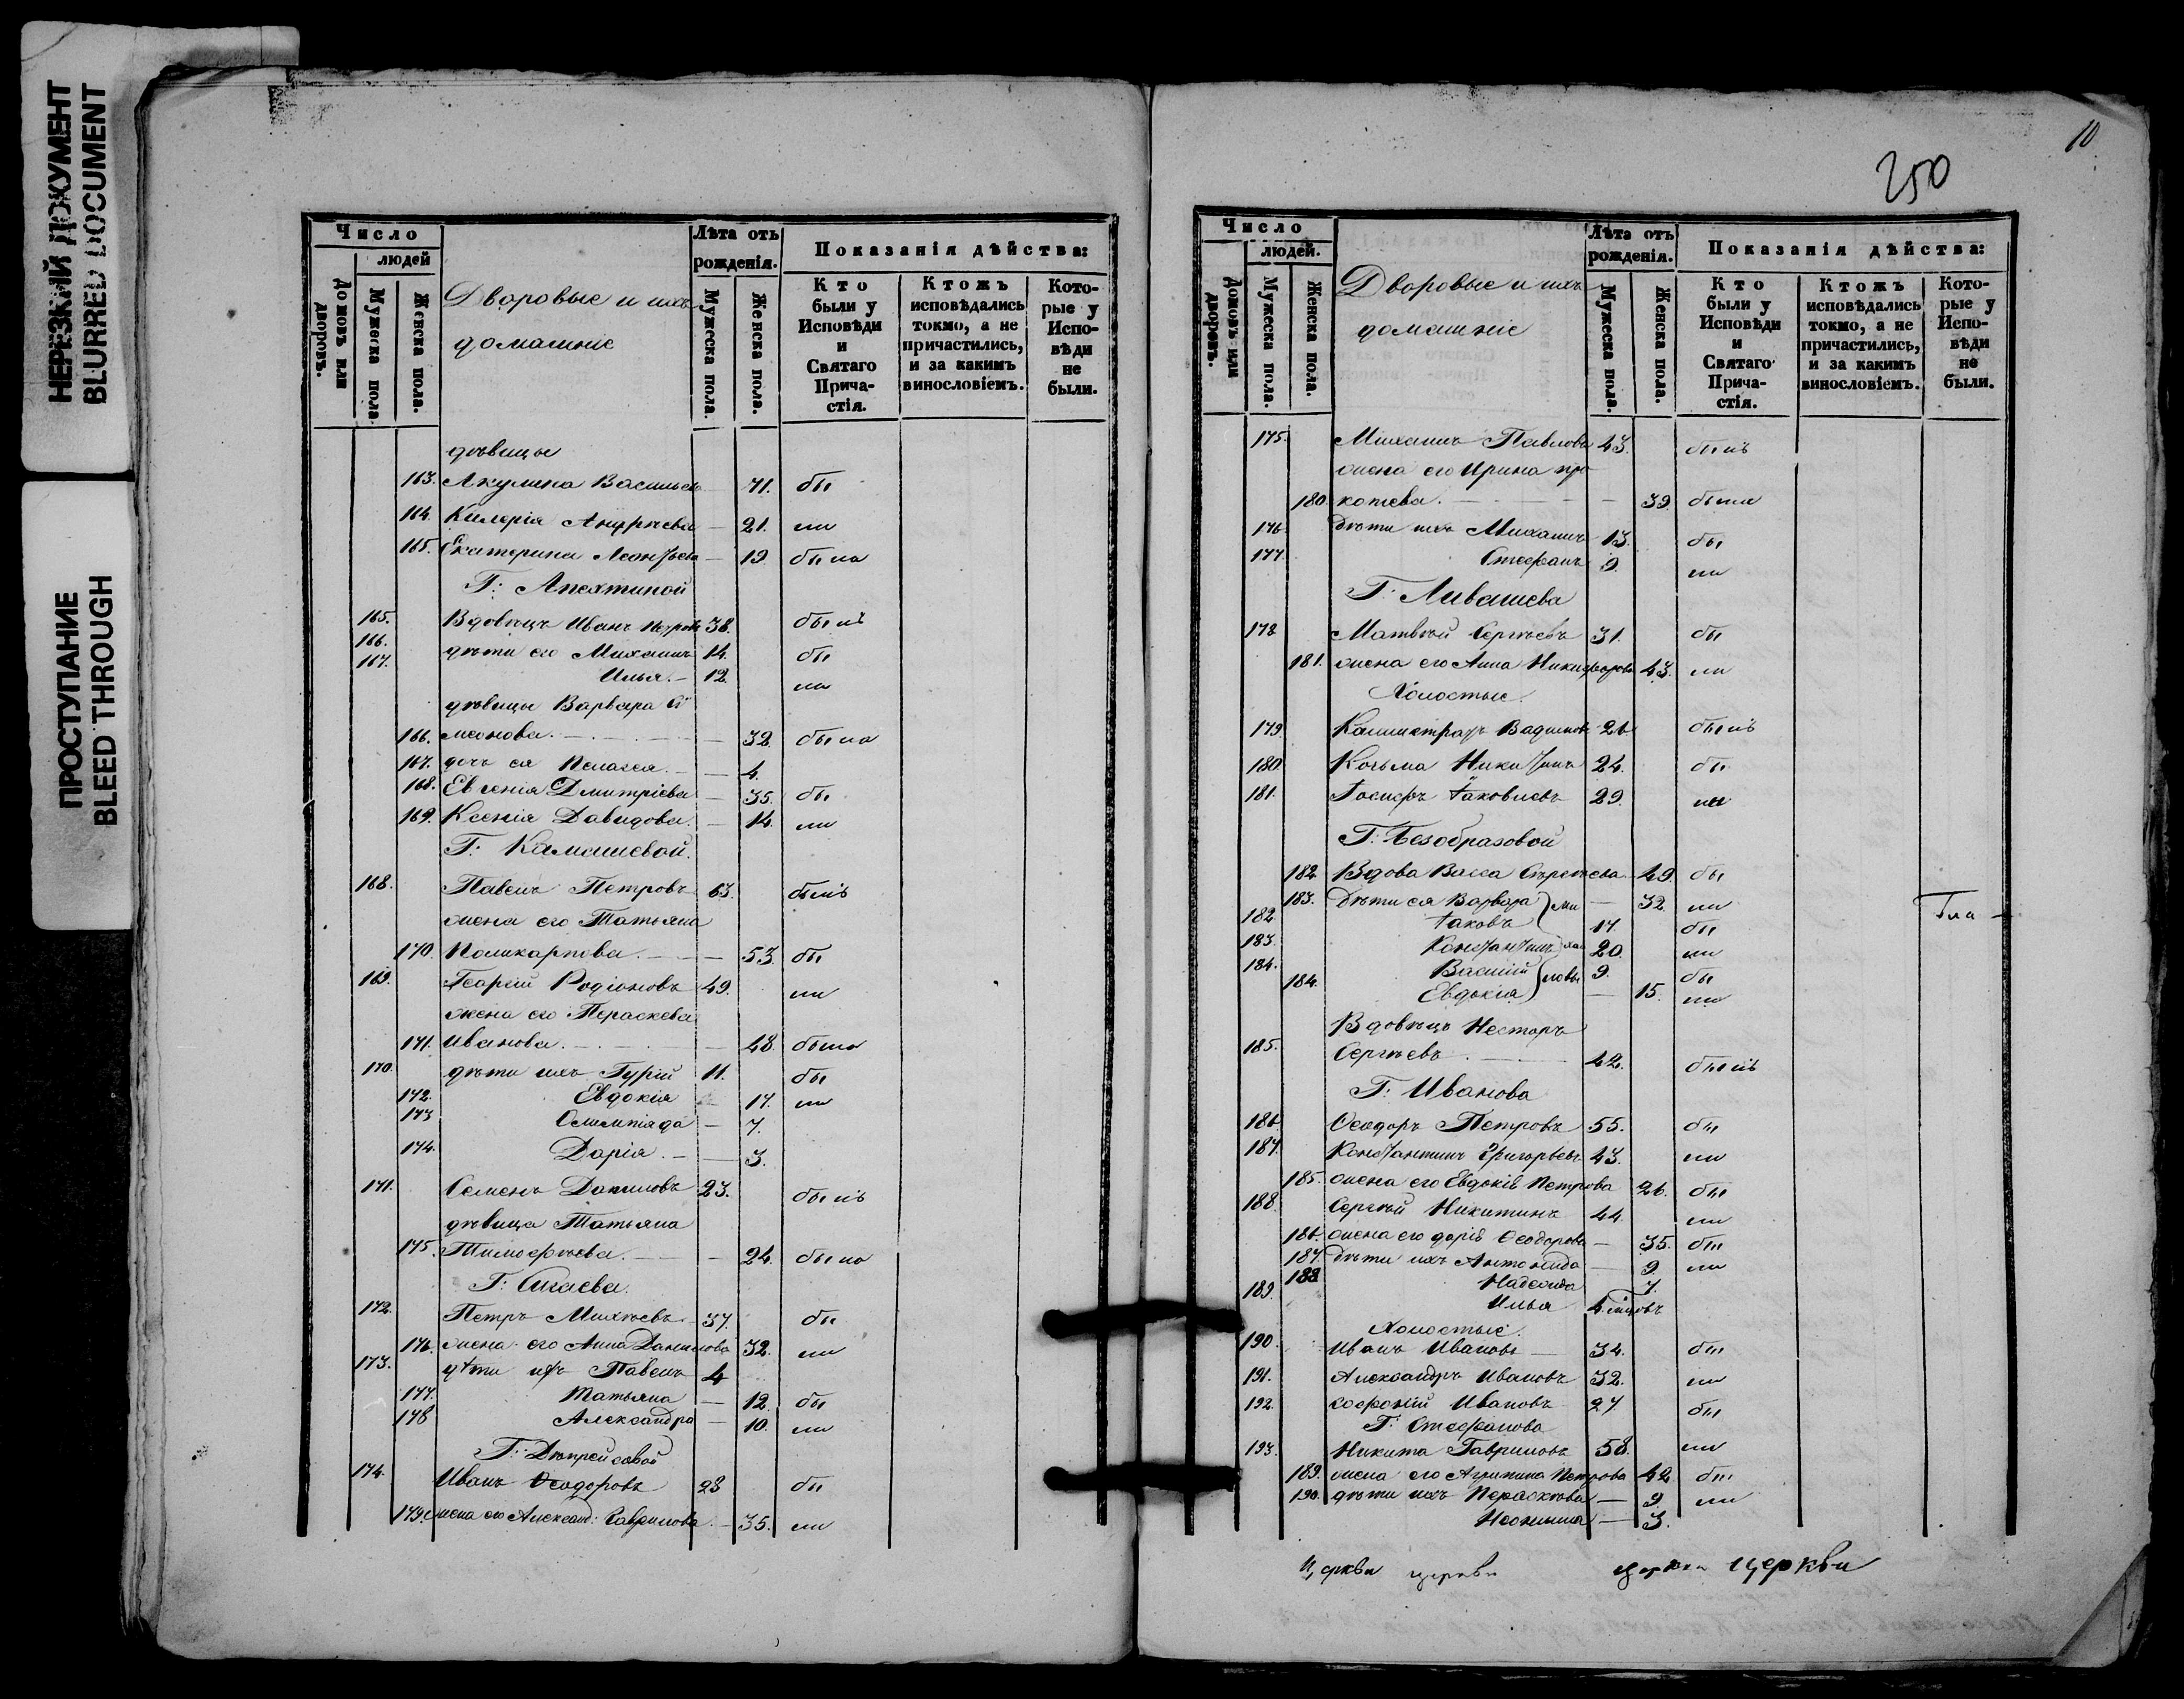 НЕРЕЗКИЙ ДОКУМЕНТ
BLURRED DOCUMENT
ПРОСТУПАНИЕ
BLEED THROUGH
Число
людей
Домовъ или дворовъ.
Мужеска пола
Женска пола.
Дворовые и ихъ
домашніе
Лѣта отъ
рожденія.
Мужеска пола.
Женска пола.
Показанія дѣйства:
Кто
были у
Исповѣди
и
Святаго
Прича-
стія.
Ктожъ
исповѣдались
токмо, а не
причастились,
и за какимъ
винословіемъ.
Кото-
рые у
Испо-
вѣди
не
были.
дѣвицы
163. Акулина Васильева 71. бы
164. Килерія Андреева — 21. ли
165. Екатерина Леонтьева — 19 была
Г: Апехтиной
165. Вдовецъ Иванъ Петровъ 38. былъ
166. дѣти его Михаилъ 14. бы
167. Илья. — 12. ли
дѣвицы Варвара Си
166. меонова. — 32. была
167. дочь ея Пелагея. — 4.
168. Евгенія Дмитріева — 35. бы
169. Ксенія Давидова. — 14. ли
Г: Камашевой.
168. Павелъ Петровъ 63. былъ
жена его Татьяна
170. Поликарпова. — 53. бы
169. Георгій Родіоновъ 49. ли
жена его Параскева
171. Иванова. — 48. была
170. дѣти ихъ Гурій 11. бы
172. Евдокія 17. ли
173 Олимпіада — 7.
174. Дарія. — 3.
171. Семенъ Даниловъ 23. былъ
дѣвица Татьяна
175. Тимоѳеева. — 24. была
Г: Сигаева.
172. Петръ Михѣевъ 37. бы
176. жена его Анна Данилова 32. ли
173. дѣти ихъ Павелъ 4
177. Татьяна — 12. бы
178 Александра — 10. ли
174. Иванъ Ѳеодоровъ 28 бы
179. жена его Александ: Гаврилова. — 35. ли
10
250
Число
людей.
Домовъ или дворовъ.
Мужеска пола.
Женска пола.
Дворовые и ихъ
домашніе
Лѣта отъ
рожденія.
Мужеска пола.
Женска пола.
Показанія дѣйства:
Кто
были у
Исповѣди
и
Святаго
Прича-
стія.
Ктожъ
исповѣдались
токмо, а не
причастились,
и за какимъ
винословіемъ.
Кото-
рые у
Испо-
вѣди
не
были.
175. Михаилъ Павловъ 43. былъ
жена его Ирина про
180. копьева. — 39. была
176. Дѣти ихъ Михаилъ 13. бы
177. Стефанъ 9. ли
Г. Ливашева
178 Матвѣй Сергѣевъ 31. бы
181. жена его Анна Никифорова 43. ли
Холостые.
179 Каллистратъ Вадимовъ 26 былъ
180. Козьма Никитинъ 24. бы
181. Іосифъ Іаковлевъ 29. ли
Г: Безобразовой
182 Вдова Васса Сергѣева 49. бы
183. Дѣти ея Варвара — 32. ли
182 Іаковъ 17. бы
183. Константинъ 20. ли
184. Василій 9. бы
184. Евдокія — 15. ли
Михайловы
Вдовецъ Несторъ
185. Сергѣевъ. — 42. былъ
Г: Иванова
186. Ѳеодоръ Петровъ 55. бы
187. Константинъ Григорьевъ 43. ли
185. жена его Евдокія Петрова 26. бы
188. Сергѣй Никитинъ 44. ли
186. жена его Дарія Ѳеодорова — 35. бы
187. Дѣти ихъ Антонида — 9. ли
188 Надежда 7.
189. Илья
Холостые.
190. Иванъ Ивановъ — 34. бы
191. Александръ Ивановъ 32. ли
192. Софроній Ивановъ 27 бы
Г: Стефанова
193. Никита Гавриловъ 58. ли
189. жена его Агрипина Петрова 42 бы
190. дѣти ихъ Параскева — 9. ли
Неонилла — 3.
церкви церкви церкви церкви